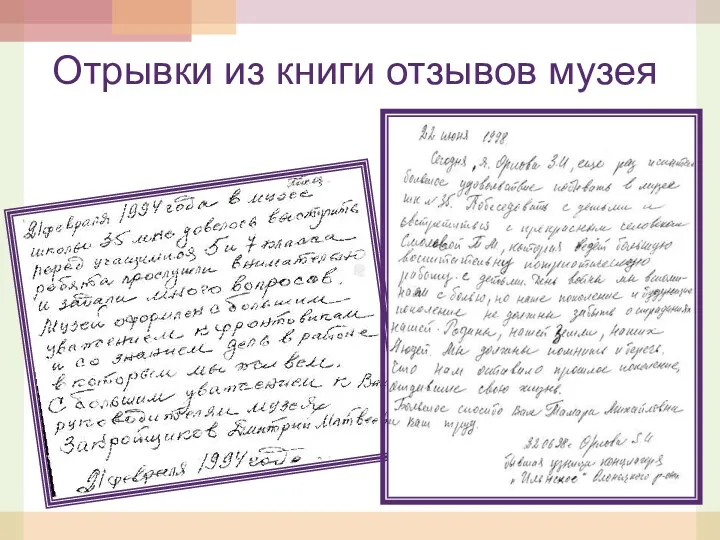 Отрывки из книги отзывов музея
21 февраля 1994 года в музее
школы 35 мне довелось выступить
перед учащимися 5 и 7 класса
ребята прослушали внимательно
и задали много вопросов.
Музей оформлен с большим
уважением к фронтовикам
и со знанием дела в районе
в котором мы живем.
С большим уважением к Вам
руководителям музея
Забройщиков Дмитрий Матвеевич
21 февраля 1994 года
22 июня 1998.
Сегодня, я, Орлова З.И, еще раз испытала
большое удовольствие побывать в музее
шк № 35. Побеседовать с детьми и
встретиться с прекрасным человеком
Т.М, которая ведет большую
воспитательную патриотическую
работу с детьми. День войны мы вспоми-
наем с болью, но наше поколение и будущее
поколение не должны забыть о страданиях
нашей Родины, нашей Земли, наших
Людей. Мы должны помнить и беречь,
что нам оставило прошлое поколение,
отдавшие свою жизнь.
Большое спасибо Вам Тамара Михайловна
за Ваш труд.
22.06.98г Орлова
бывшая узница концлагеря
"Ильинское" Олонецкого р-на